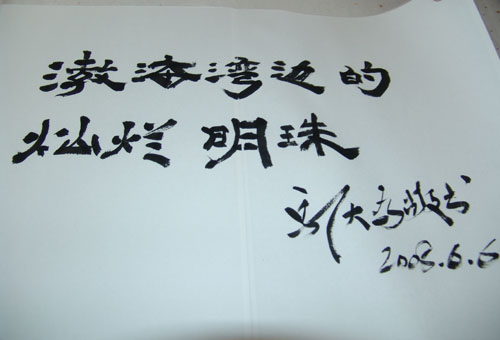 渤海湾边的
灿烂明珠
大 书
2008.6.6